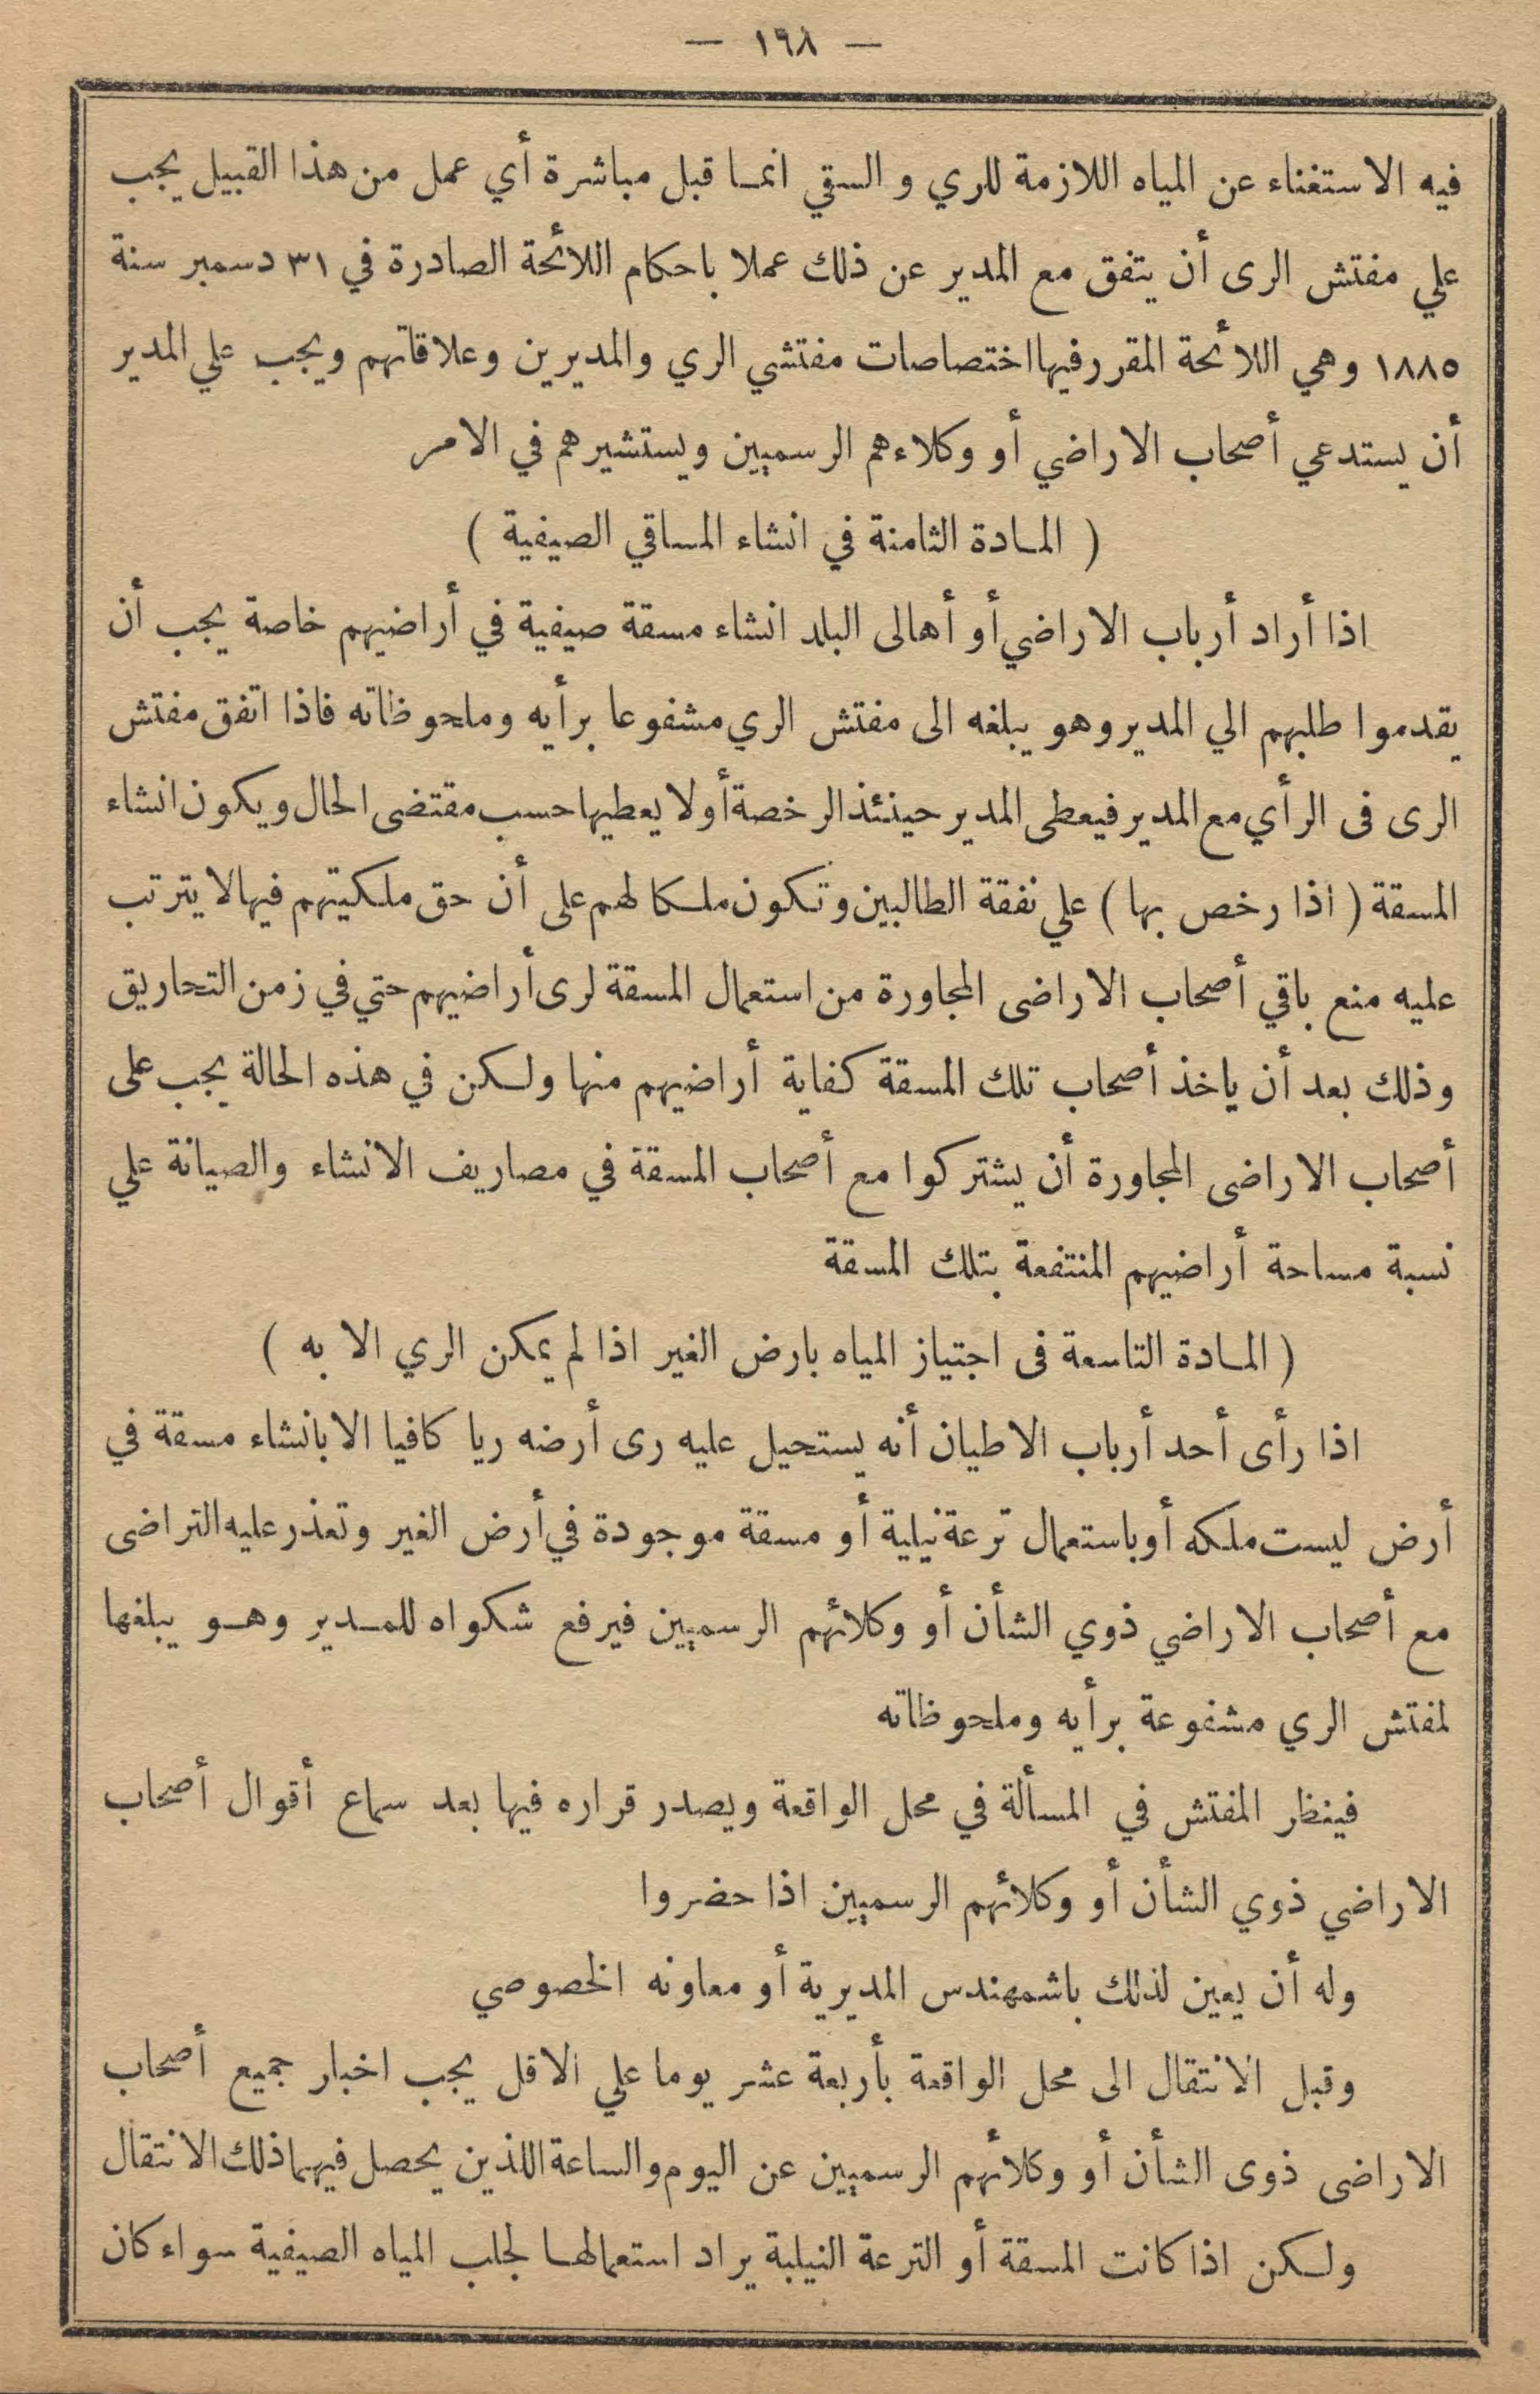 — ١٦٨ —
فيه الاستغناء عن المياه اللازمة للري و السقي انمــا قبل مباشرة أي عمل من هذا القبيل يجب
علي مفتش الرى أن يتفق مع المدير عن ذلك عملا باحكام اللائحة الصادرة في ٣١ دسمبر سنة
١٨٨٥ وهي اللائحة المقرر فيها اختصاصات مفتشي الري والمديرين وعلاقاتهم ويجب علي المدير
أن يستدعي أصحاب الاراضي أو وكلاءهم الرسميين ويستشيرهم في الامر
( المـادة الثامنة في انشاء المساقي الصيفية )
اذا أراد أرباب الاراضي أو أهالى البلد انشاء مسقة صيفية في أراضيهم خاصة يجب أن
يقدموا طلبهم الي المدير وهو يبلغه الى مفتش الري مشفوعا برأيه وملحوظاته فاذا اتفق مفتش
الرى فى الرأي مع المدير فيعطى المدير حينئذ الرخصة أولا يعطيها حسب مقتضى الحال ويكون انشاء
المسقة ( اذا رخص بها ) علي نفقة الطالبين وتكون ملـكا لهم على أن حق ملـكيتهم فيها لا يترتب
عليه منع باقي أصحاب الاراضى المجاورة من استعمال المسقة لرى أراضيهم حتي في زمن التحاريق
وذلك بعد أن ياخذ أصحاب تلك المسقة كفاية أراضيهم منها ولـكن في هذه الحالة يجب على
أصحاب الاراضى المجاورة أن يشتركوا مع أصحاب المسقة في مصاريف الانشاء والصيانة علي
نسبة مساحة أراضيهم المنتفعة بتلك المسقة
( المـادة التاسعة فى اجتياز المياه بارض الغير اذا لم يمكن الري الا به )
اذا رأى أحد أرباب الاطيان أنه يستحيل عليه رى أرضه ريا كافيا الا بانشاء مسقة في
أرض ليست ملـكه أو باستعمال ترعة نيلية أو مسقة موجودة في أرض الغير وتعذر عليه التراضى
مع أصحاب الاراضي ذوي الشأن أو وكلائهم الرسميين فيرفع شكواه للمـدير وهـو يبلغها
لمفتش الري مشفوعة برأيه وملحوظاته
فينظر المفتش في المسألة في محل الواقعة ويصدر قراره فيها بعد سماع أقوال أصحاب
الاراضي ذوي الشأن أو وكلائهم الرسميين اذا حضروا
وله أن يعين لذلك باشمهندس المديرية أو معاونه الخصوصي
وقبل الانتقال الى محل الواقعة بأربعة عشر يوما علي الاقل يجب اخبار جميع أصحاب
الاراضى ذوى الشأن أو وكلائهم الرسميين عن اليوم والساعة اللذين يحصل فيهما ذلك الانتقال
ولـكن اذا كانت المسقة أو الترعة النيلية يراد استعمالهـا لجلب المياه الصيفية سواء كان